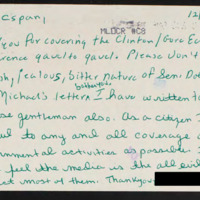 Cspan, 12/
MLDCR #C8
you for covering the Clinton/Gore Ec
rence gavel to gavel. Please don't
jealous, bitter nature of Sen. Do
Michael's letters I have written to
se gentleman also. As a citizen I
ul to any and all coverage
nmental activities as possible. I
feel the media is the all evil
ct most of them. Thankyou